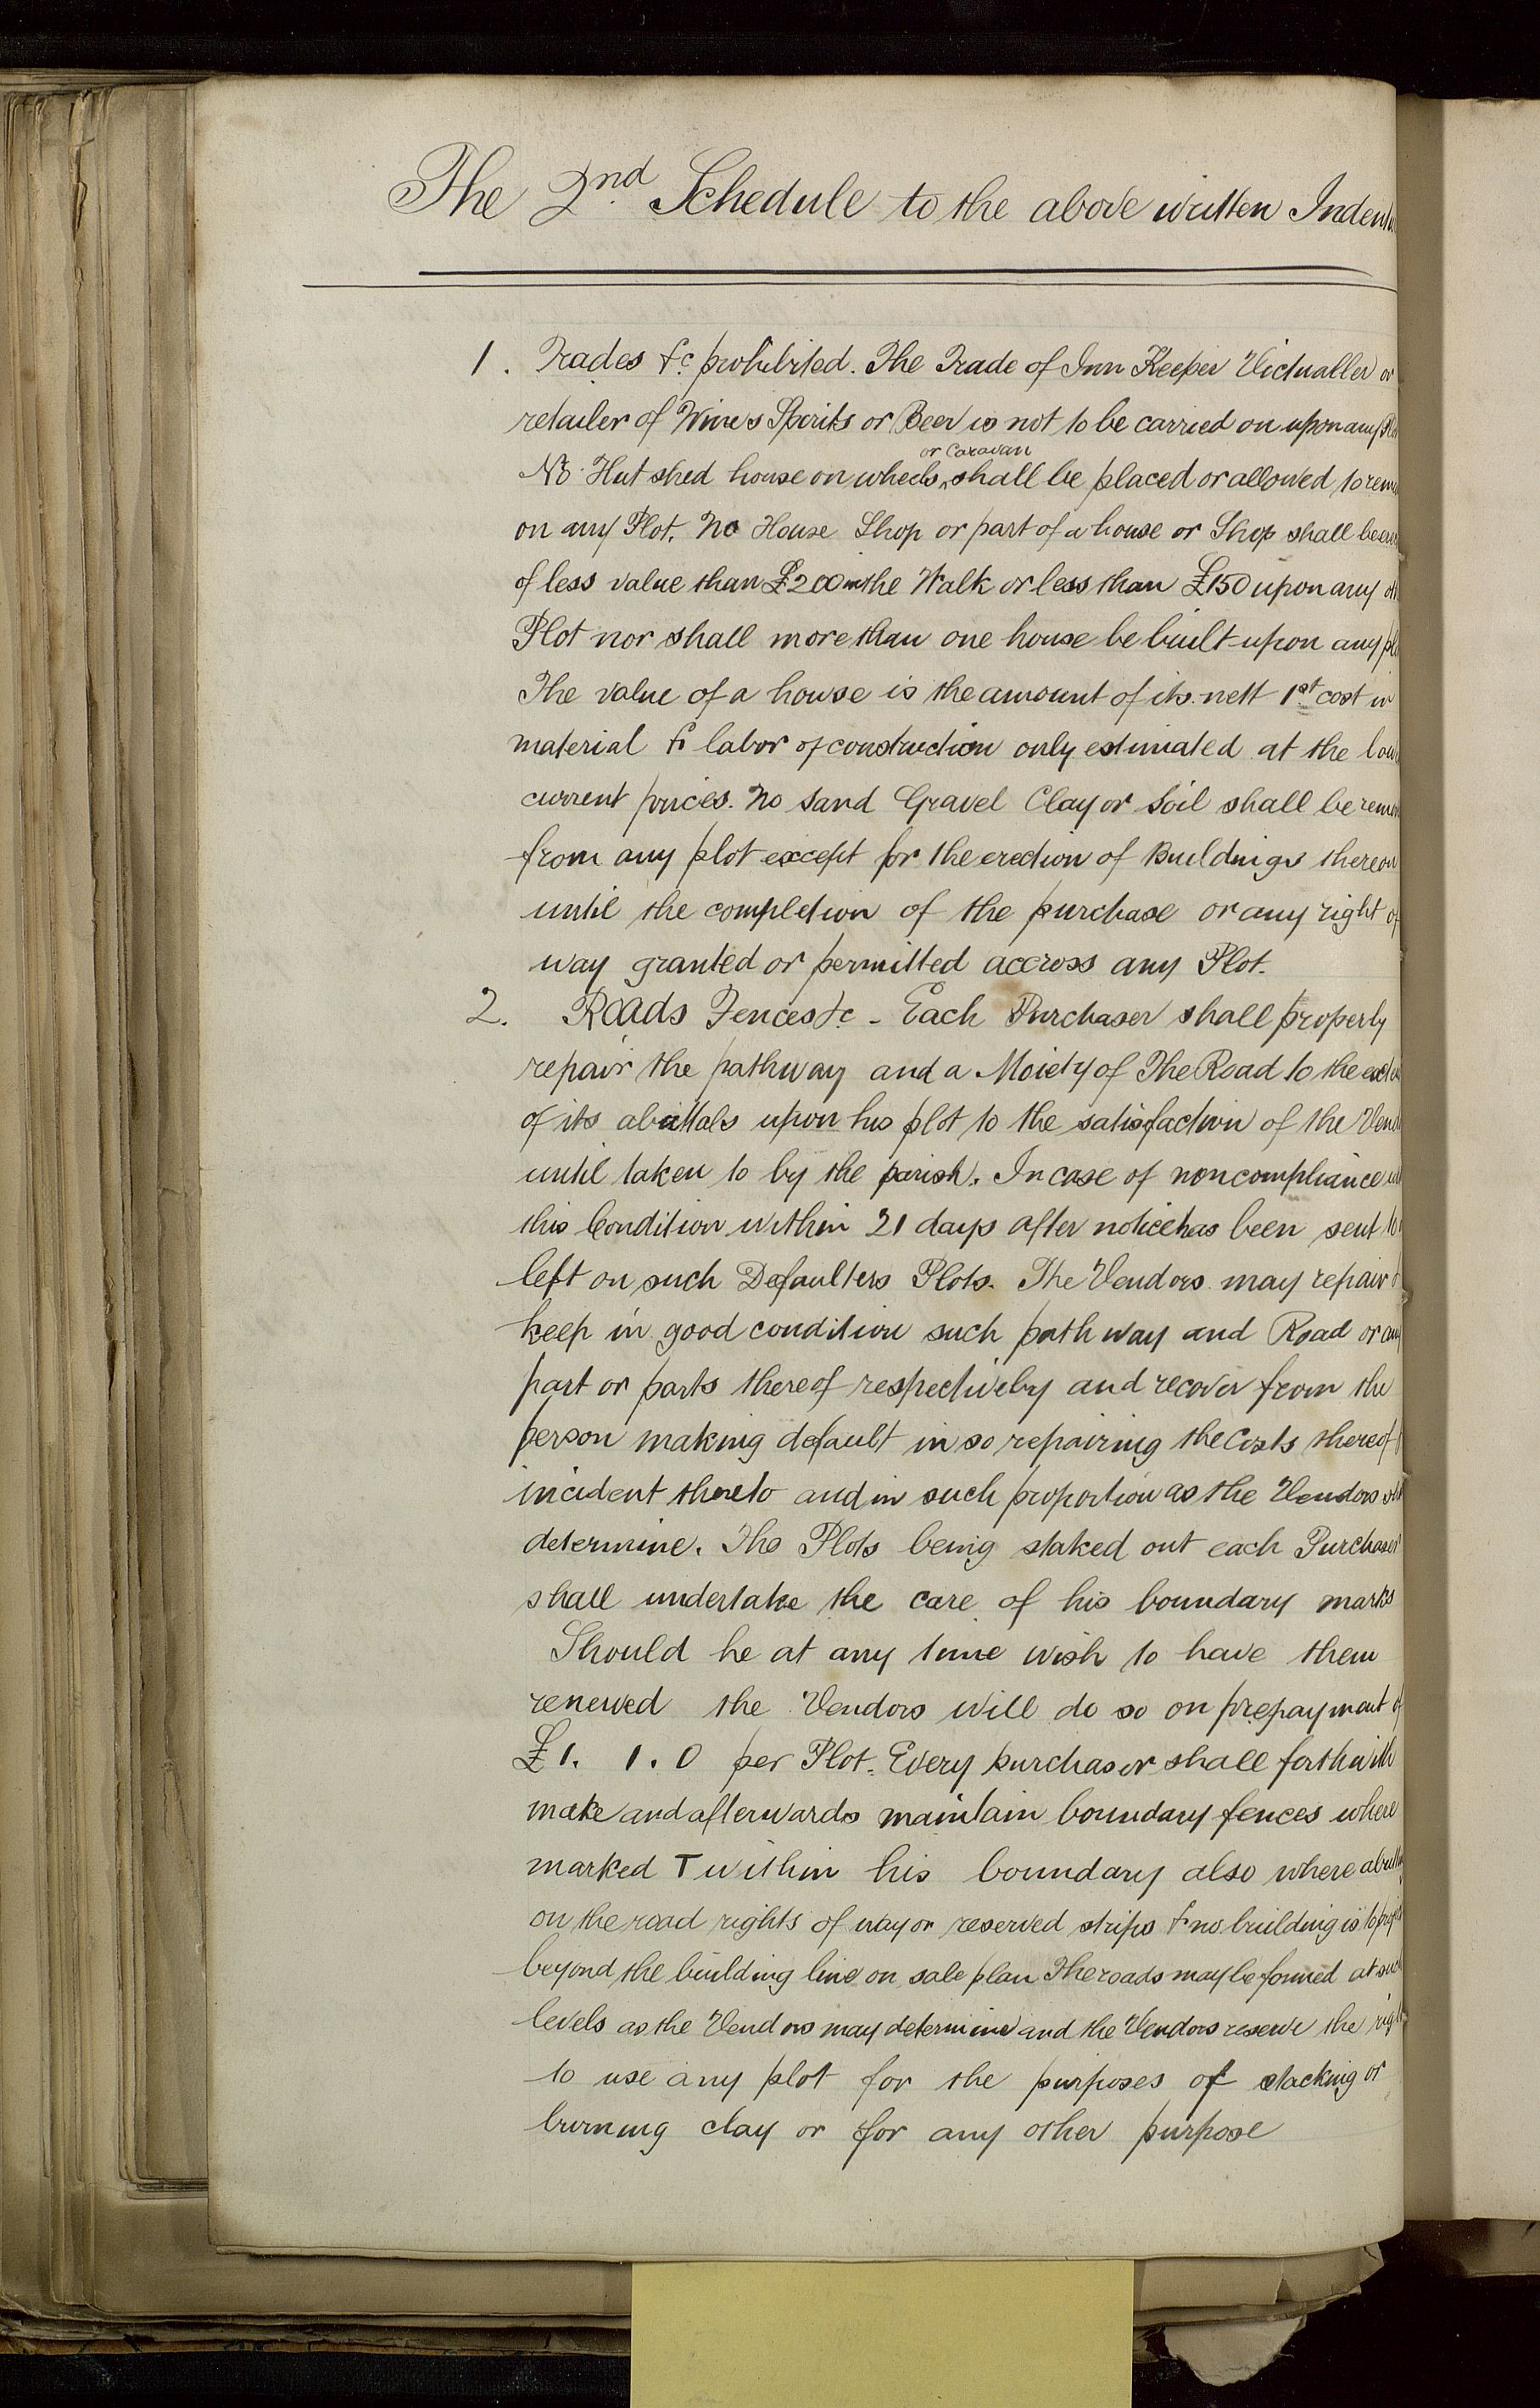 The 2nd. Schedule to the above written Indentu
1. Trades &c. prohibited. The Trade of Inn Keeper Victualler or
retailer of Wines Spirits or Beer is not to be carried on upon any Plo
or Caravan
No Hut shed house on wheels ^ shall be placed or allowed to rem
on any Plot. No House Shop or part of a house or Shop shall be
of less value than £200 in the Walk or less than £150 upon any oth
Plot nor shall more than one house be built upon any pl
The value of a house is the amount of its nett 1st cost in
material & labor of construction only estimated at the low
current prices. No sand Gravel Clay or Soil shall be remo
from any plot except for the erection of Buildings thereon
until the completion of the purchase or any right of
way granted or permitted accross any Plot.
2. Roads Fences &c - Each Purchaser shall properly
repair the pathway and a Moiety of The Road to the
of its abuttals upon his plot to the satisfaction of the Vend
until taken to by the parish. In case of noncompliance
this Condition within 21 days after notice has been sent to
left on such Defaulters Plots. The Vendors may repair
keep in good condition such path way and Road or any
part or parts thereof respectively and recover from the
person making default in so repairing the Costs thereof
incident thereto and in such proportion as the Vendors
determine. The Plots being staked out each Purchaser
shall undertake the care of his boundary marks
Should he at any time wish to have them
renewed the Vendors will do so on prepayment of
£1. 1. 0 per Plot. Every purchaser shall forthwith
make and afterwards maintain boundary fences where
marked T within his boundary also where
on the road rights of way or reserved strips & no building is to
beyond the building line on sale plan The roads may be formed at such
levels as the Vendors may determine and the Vendors reserve the right
to use any plot for the purposes of stacking or
burning clay or for any other purpose